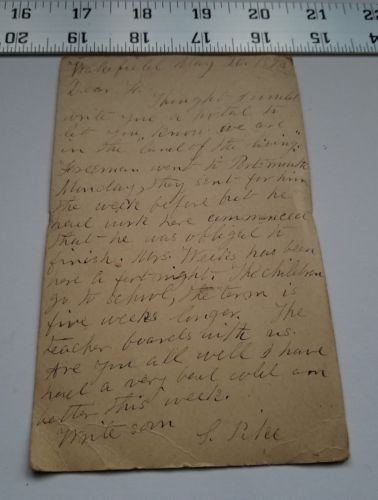 16 17 18 19 20 21
20 19 18 17 16 15
Wakefield May
Dear H.
Thought I would
write you a postal to
let you know we are
in the "land of the living."
Freeman went to Portsmouth
Monday, they sent for him
the week before but he
had work here commenced
that he was obliged to
finish. Mrs. Weeks has been
here a fortnight. The children
go to school, the term is
five weeks longer. The
teacher boards with us.
Are you all well I have
had a very bad cold am
better this week.
Write soon S. Pike